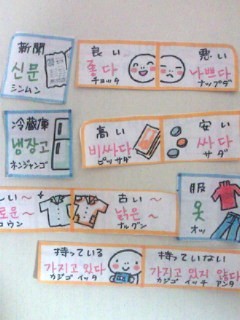 新聞
신문
シンムン
良い
좋다
チョッタ
悪い
나쁘다
ナップダ
冷蔵庫
냉장고
ネンジャンゴ
高い
비싸다
ピッサダ
安い
싸다
サダ
しい〜
로운〜
ロウン
古い〜
낡은〜
ナックン
服
옷
オッ
持っている
가지고 있다
カジゴ イッタ
持っていない
가지고 있지 않다
カジゴ イッチ アンタ